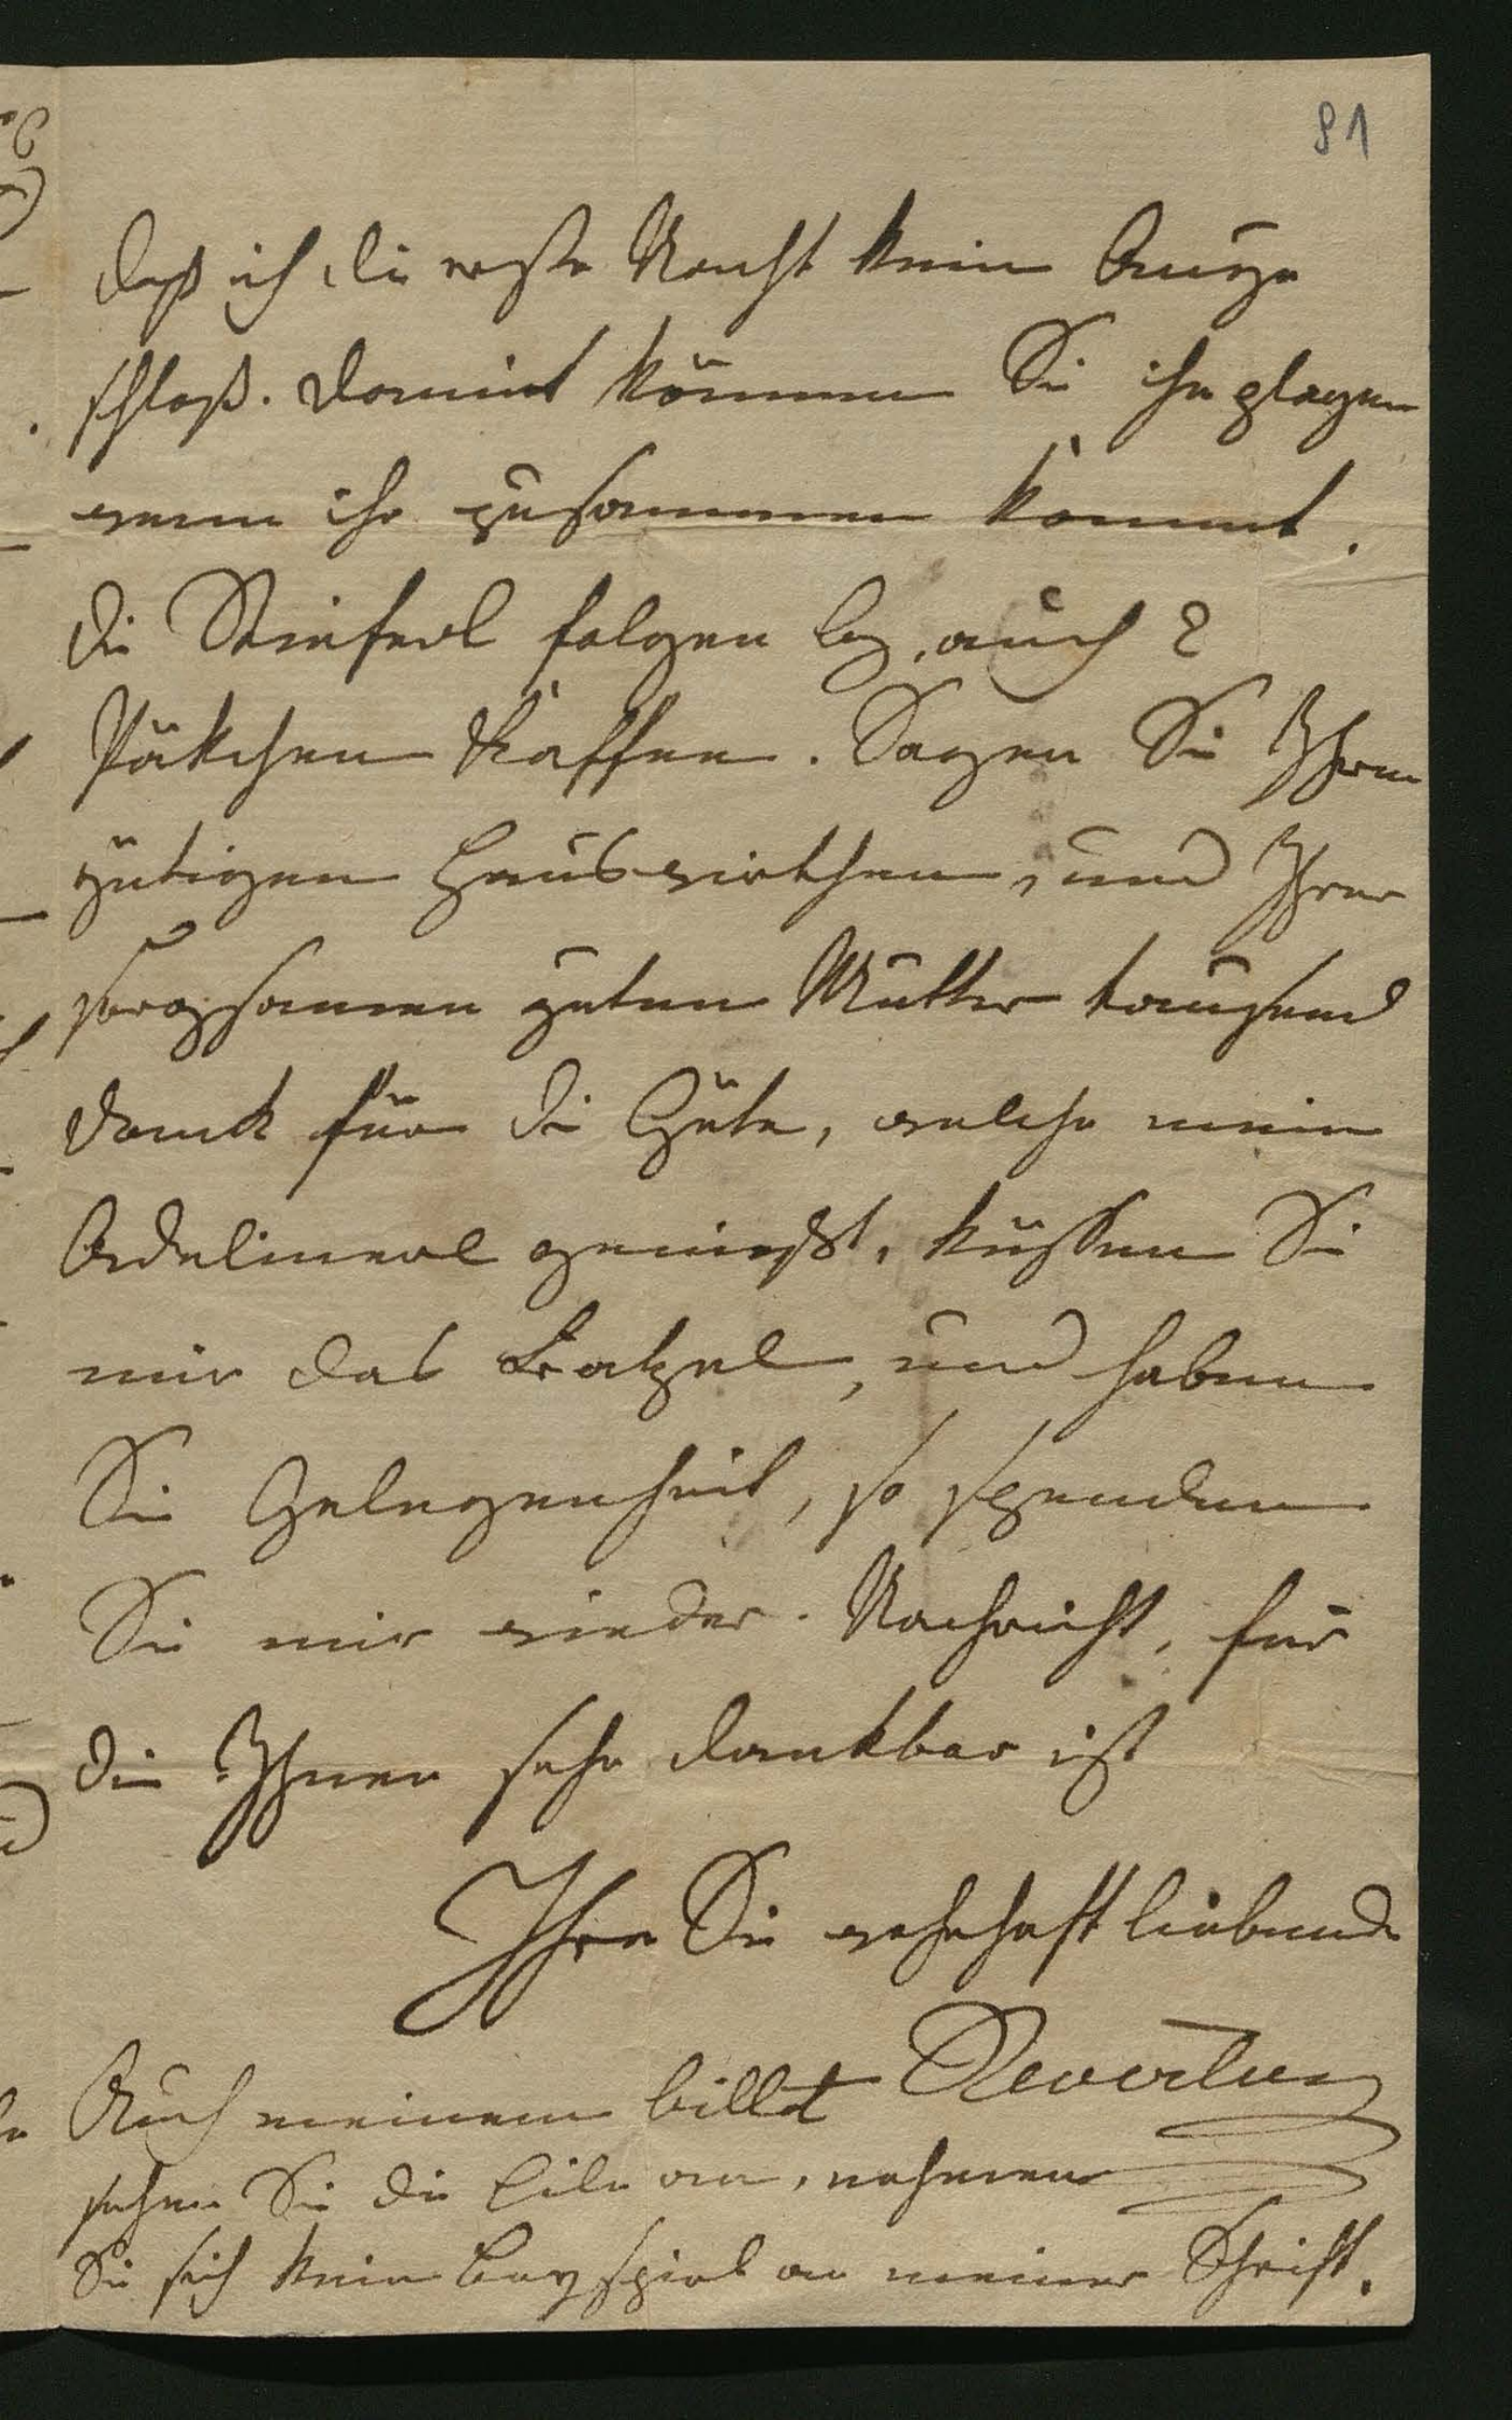 81
daß ich die erste Nacht kein Auge
schloß. Damit können Sie ihn plagen
wenn ihr zusammen kommt.
Die Stieferl folgen bey, auch 2
Päkchen Kaffee. Sagen Sie Ihrem
gütigen Hauswirthen, und Ihrer
sorgsamen guten Mutter tausend
Dank für die Güte, welche mein
Adelinerl genießt, küssen Sie
mir das Bratzel, und haben
Sie Gelegenheit, so spenden
Sie mir wieder Nachricht, für
die Ihnen sehr dankbar ist
Ihre Sie wahrhaft liebende
Auch meinem billet
sehen Sie die Eile an, nehmen
Sie sich kein Beyspiel an meiner Schrift.